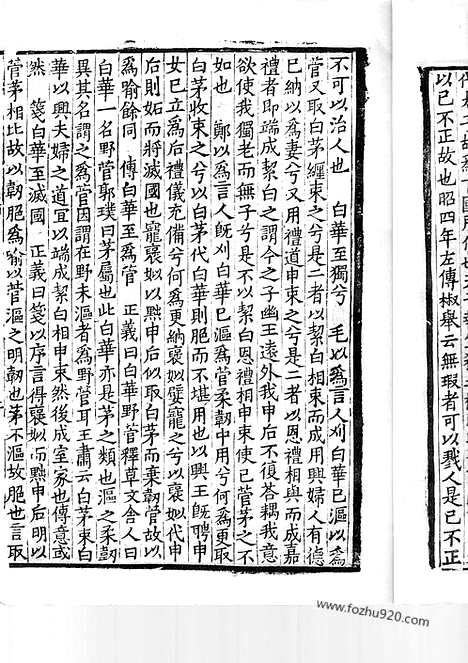 以己不正故也昭四年左傳椒舉云無瑕者可以戮人是己不正
不可以治人也　白華至獨兮　毛以為言人刈白華已漚以為
菅又取白茅纏束之兮是二者以絜白相束而成用興婦人有德
已納以為妻兮又用禮道申束之兮是二者以恩禮相與而成嘉
禮者即端成絜白之謂今之子幽王遠外我申后不復荅耦我意
欲使我獨老而無子兮是不以絜白恩禮相申束使已菅茅之不
如也　鄭以為言人既刈白華已漚為菅柔韌中用兮何為更取
白茅收束之兮以白茅代白華則脆而不堪用也以興王既聘申
女已立為后禮儀充備兮何為更納褒姒嬖寵之兮以褒姒代申
后則妬而將滅國也寵褒姒以黜申后似取白茅而棄韌菅故以
為喻餘同　傳白華至為菅　正義曰白華野菅釋草文舍人曰
白華一名野菅郭璞曰茅屬也此白華亦是茅之類也漚之柔韌
異其名謂之為菅因謂在野未漚者為野菅耳王肅云白茅束白
華以興夫婦之道宜以端成絜白相申束然後成室家也傳意或
然　箋白華至滅國　正義曰箋以序言得褒姒而黜申后明以
菅茅相比故以韌脆為喻以菅漚之明韌也茅不漚故脆也言取
www.fozhu920.com